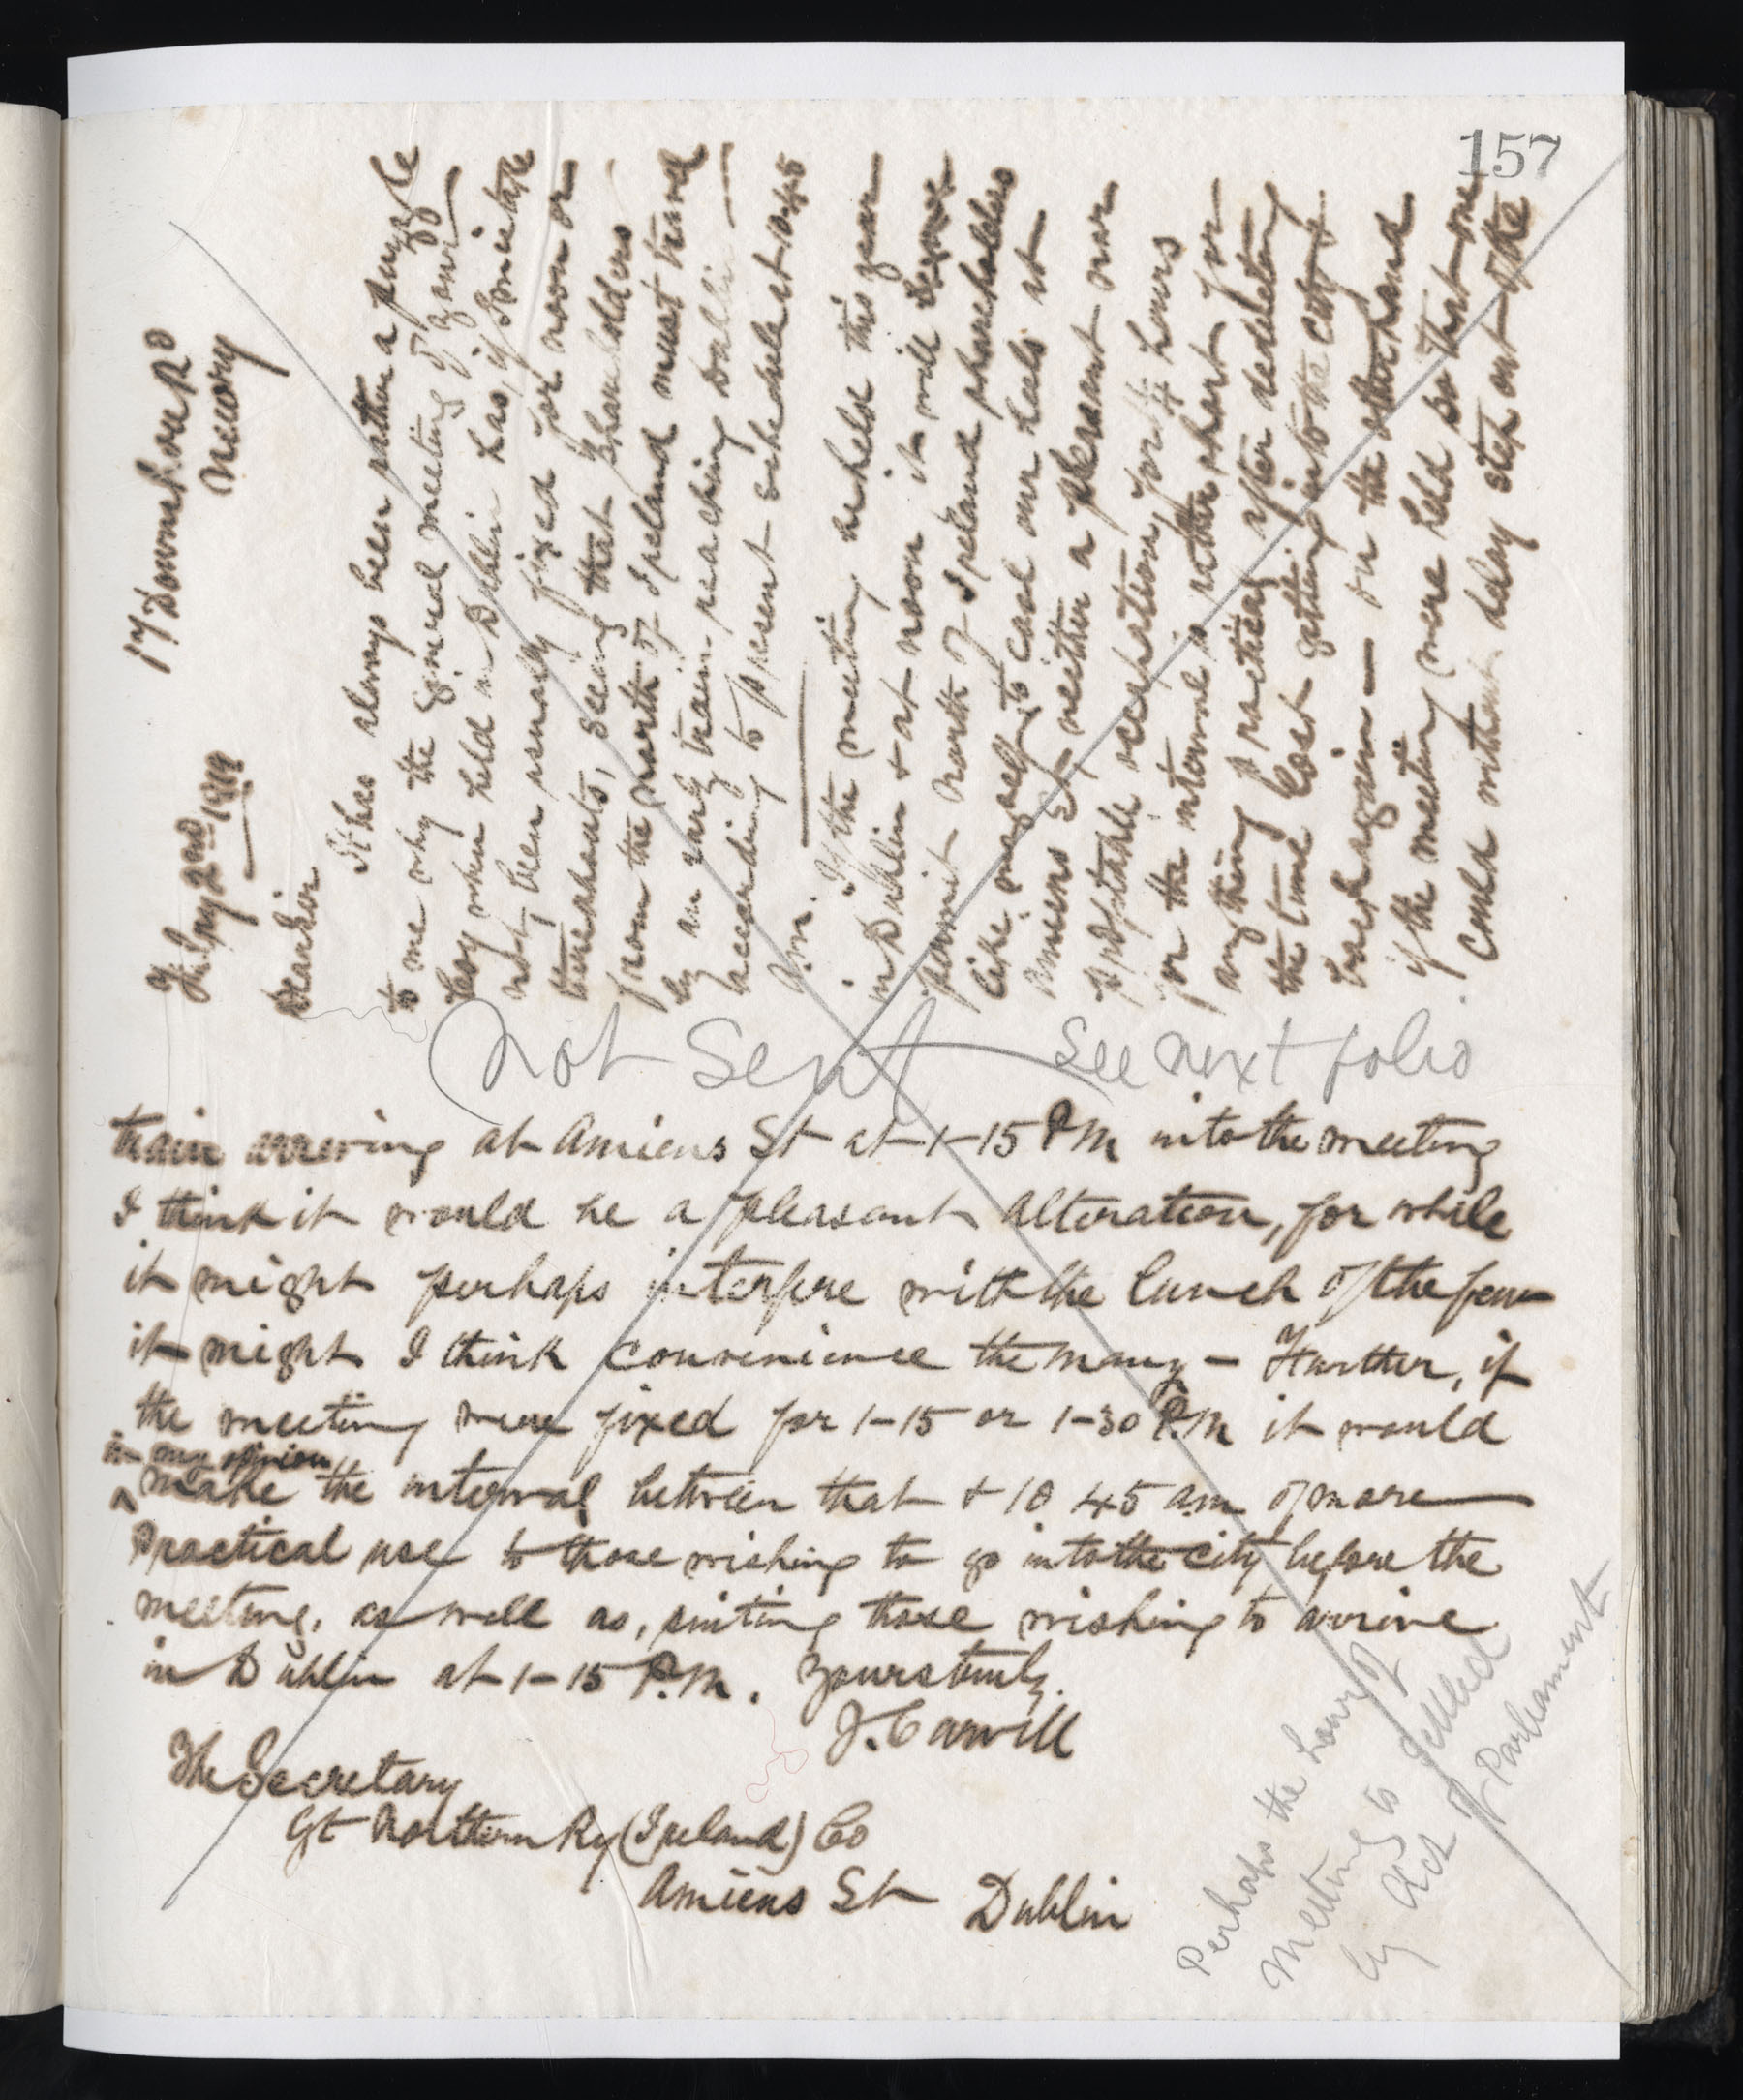 157
17 Downshire Rd
Newry
Feby 2nd 1919
Dear Sir
It has always been rather a puzzle
to me why the general meeting of your
Coy when held in Dublin has, if I mistake
not, been usually fixed for noon or
thereabouts, seeing that Shareholders
from the north of Ireland must travel
by an early train reaching Dublin
according to present schedule at 10.45
a.m. If the meeting is held this year
in Dublin & at noon it will
permit North of Ireland shareholders
like myself, to cool our heels at
Amiens St neither a pleasant nor
profitable occupation, for 1¼ hours
for the interval is rather short for
anything practical after deducting
the time lost getting into the city &
back again — on the other hand
if the meeting were held so that one
could without delay step out of the
Not Sent — See next folio
train arriving at Amiens St at 1-15 PM into the meeting
I think it would be a pleasant alteration, for while
it might perhaps interfere with the lunch of the few
it might I think convenience the many – Further, if
the meeting were fixed for 1-15 or 1-30 P.M it would
in my opinion
^ make the interval between that & 10 45 am of more
Practical use to those wishing to go into the city before the
meeting, as well as, suiting those wishing to arrive
in Dublin at 1-15 P.M. Yours truly.
J. Carvill
The Secretary
Gt Northern Ry (Ireland) Co
Amiens St Dublin
Perhaps the hour of
Meeting is settled
by Act of Parliament